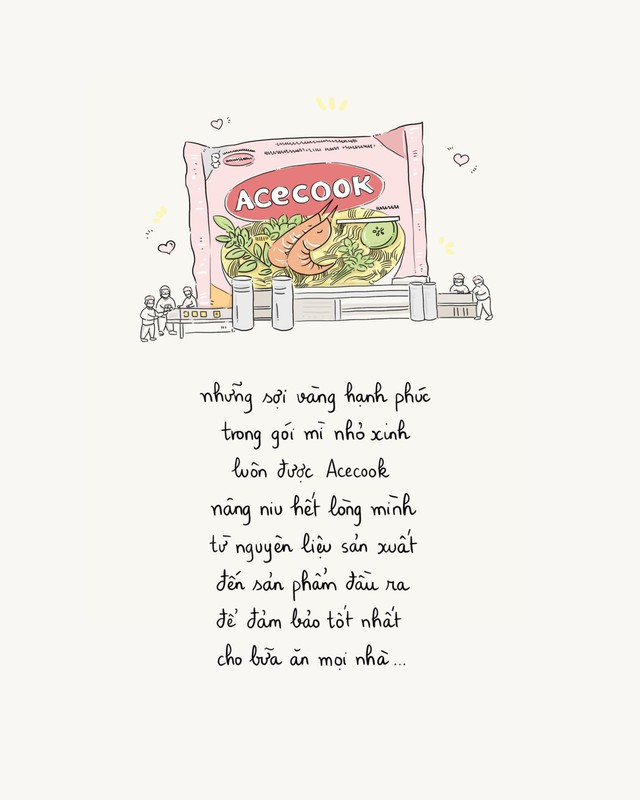 ACECOOK
những sợi vàng hạnh phúc
trong gói mì nhỏ xinh
luôn được Acecook
nâng niu hết lòng mình
từ nguyên liệu sản xuất
đến sản phẩm đầu ra
để đảm bảo tốt nhất
cho bữa ăn mọi nhà...